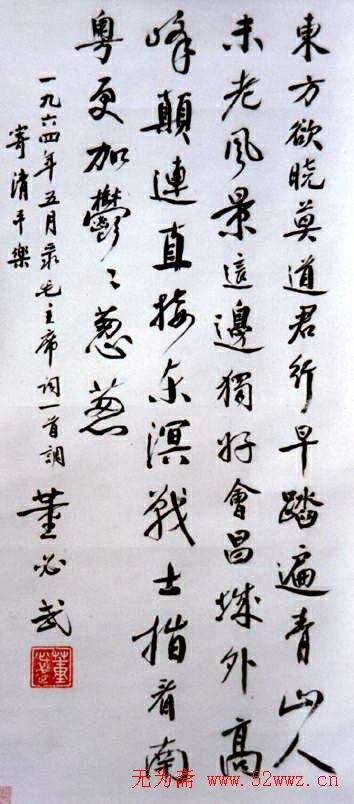 東方欲晓莫道君行早踏遍青山人
未老風景這邊獨好會昌城外高
峰顛連直接东溟戰士指看南
粤更加鬱〻葱葱
一九六四年五月录毛主席词一首調
寄清平樂
董必武
无为斋 www.52wwz.cn